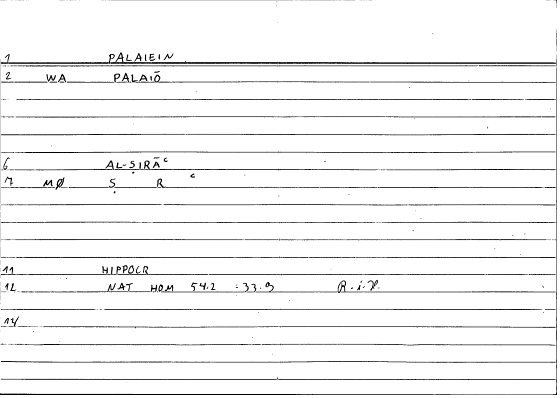 1 PALAIEIN
2 WA PALAIŌ
6 AL-ṢIRĀʿ
7 MØ Ṣ R ʿ
11 HIPPOCR
12 NAT HOM 54.2 :33.9 R.i.P.
14